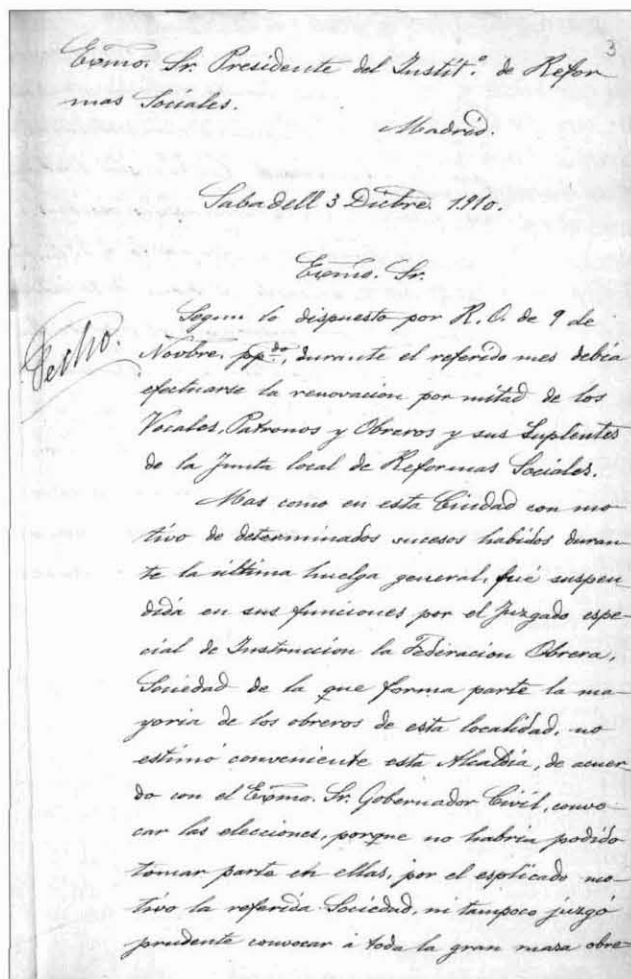 3
Exmo. Sr. Presidente del Instit.º de Refor-
mas Sociales.
Madrid.
Sabadell 3 Dicbre. 1910.
Exmo. Sr.
Segun lo dispuesto por R. O. de 9 de
Hecho.
Novbre. pp.do, durante el referido mes debia
efectuarse la renovacion por mitad de los
Vocales, Patronos y Obreros y sus Suplentes
de la Junta local de Reformas Sociales.
Mas como en esta Ciudad con mo-
tivo de determinados sucesos habidos duran-
te la última huelga general, fué suspen-
dida en sus funciones por el Juzgado espe-
cial de Instruccion la Federacion Obrera,
Sociedad de la que forma parte la ma-
yoria de los obreros de esta localidad, no
estimó conveniente esta Alcaldía, de acuer-
do con el Exmo. Sr. Gobernador Civil, convo-
car las elecciones, porque no habria podido
tomar parte en ellas, por el esplicado mo-
tivo la referida Sociedad, ni tampoco juzgó
prudente convocar á toda la gran masa obre-